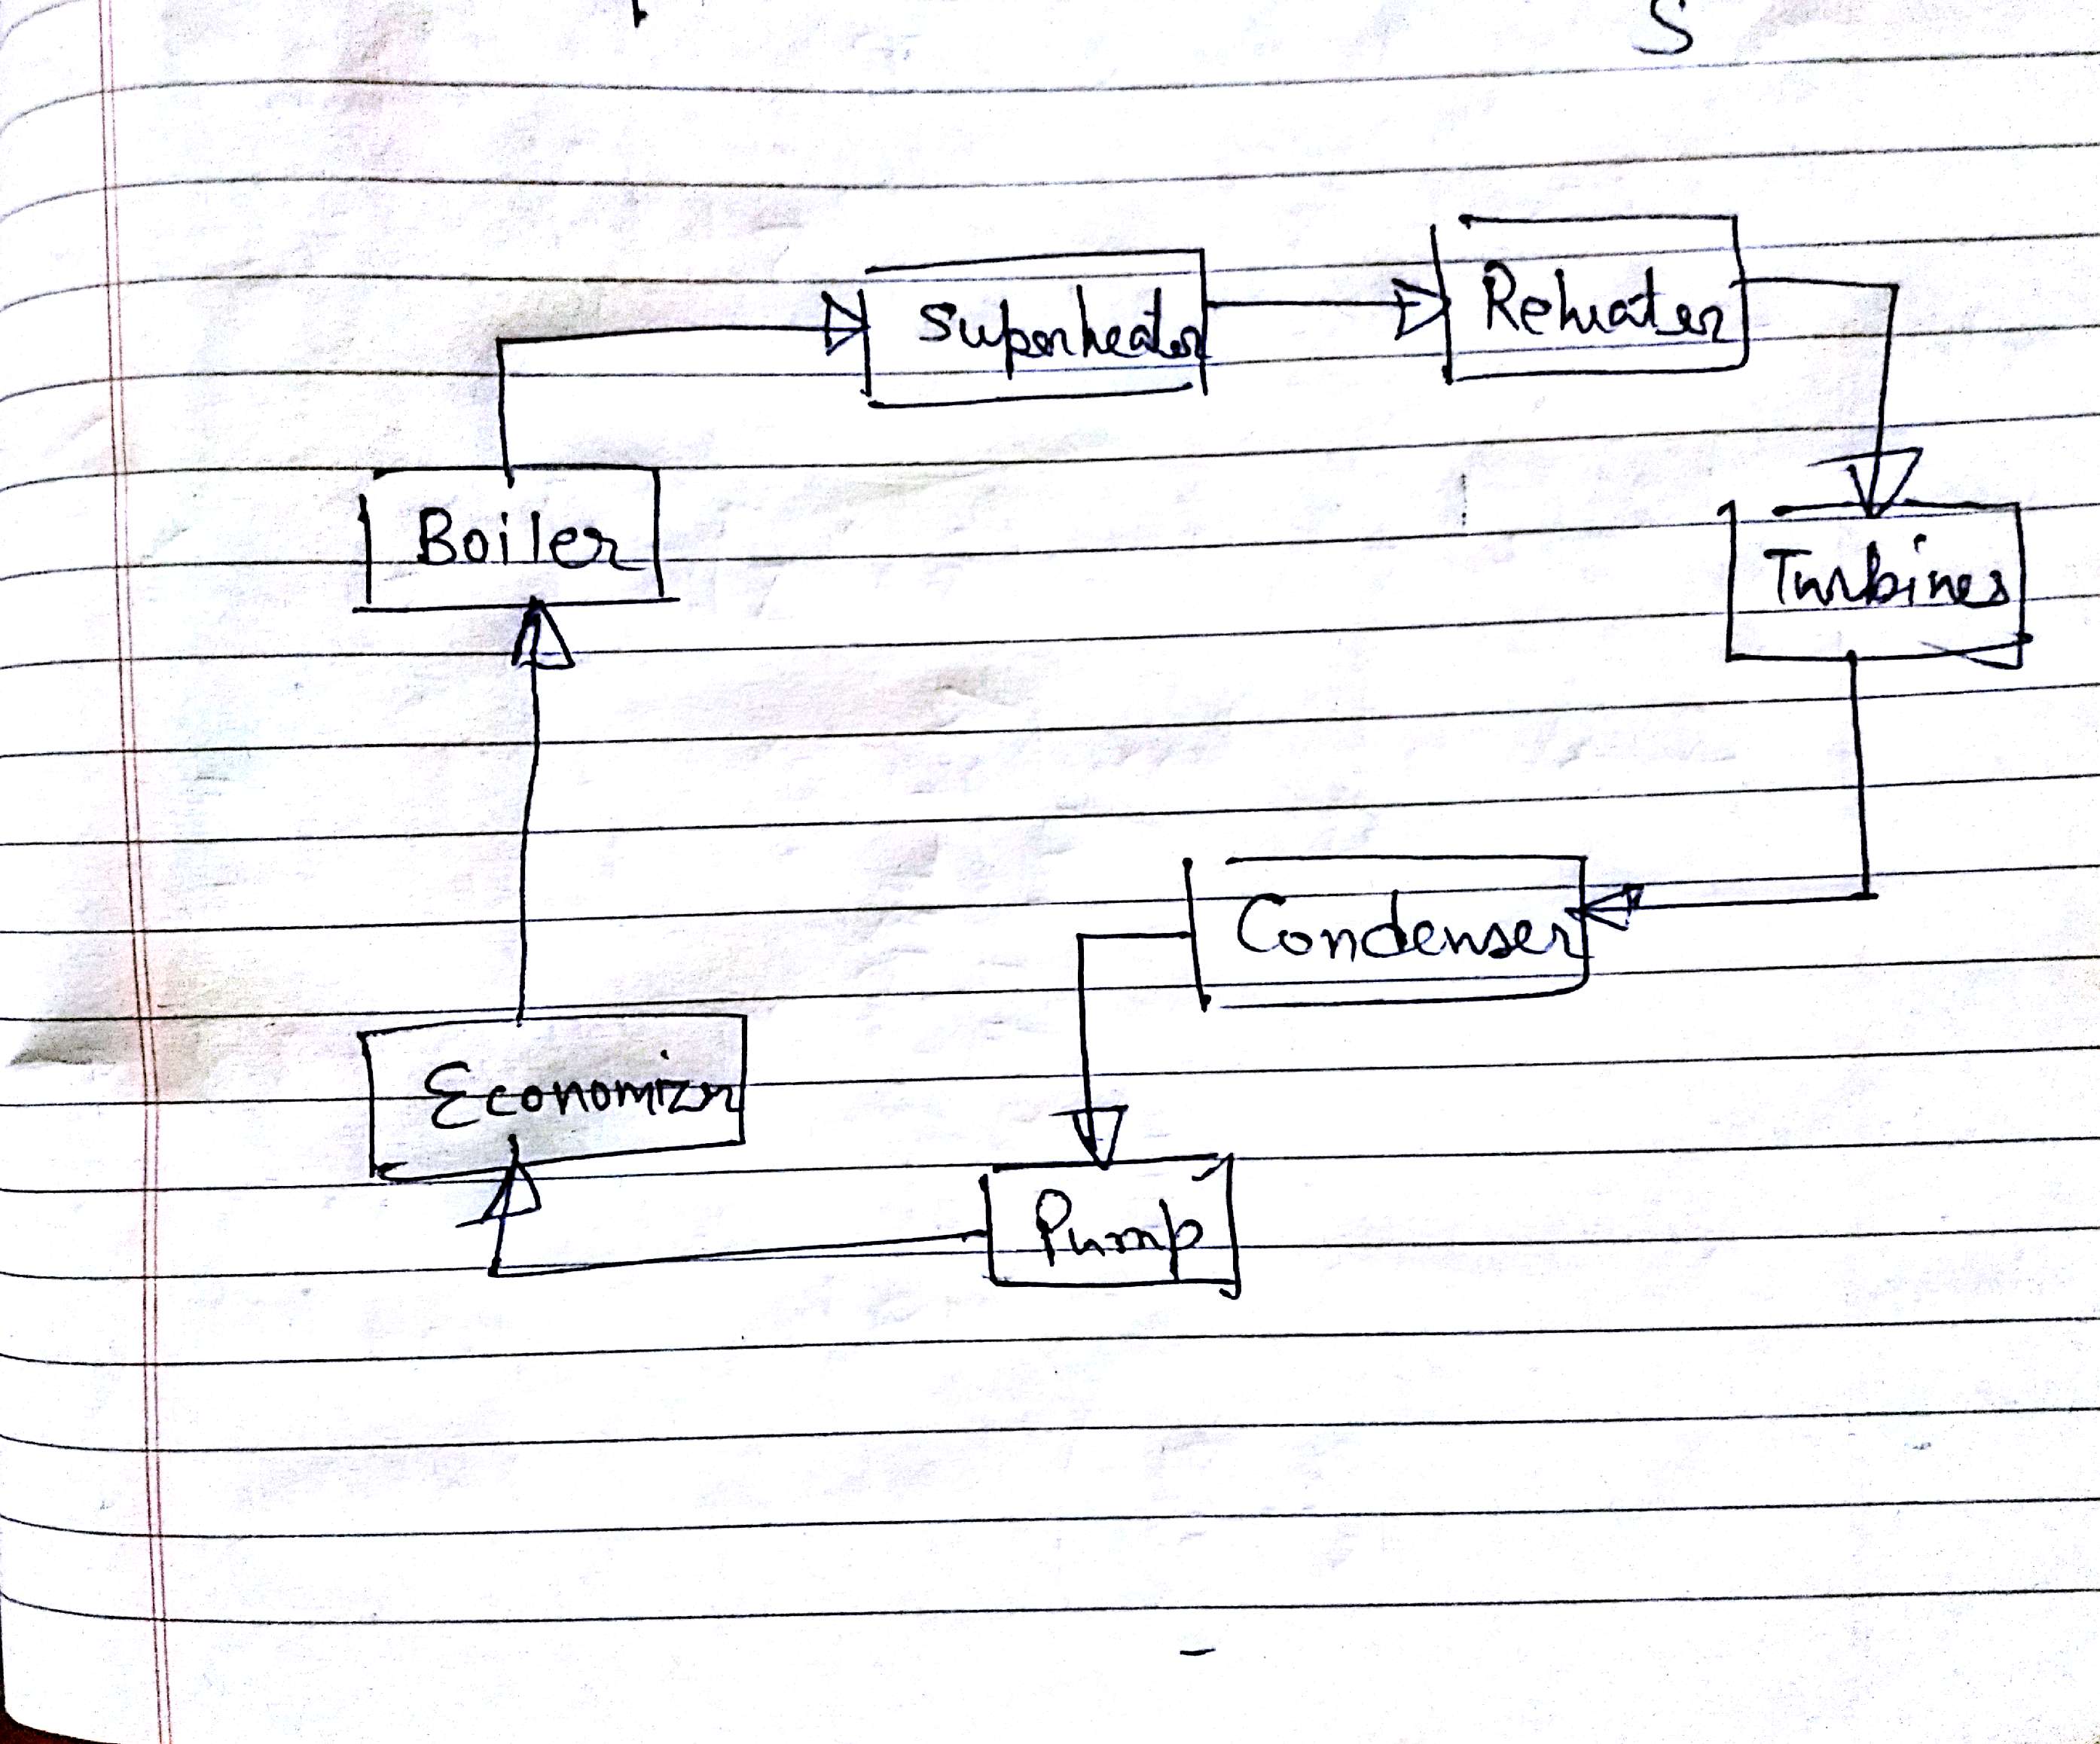 S
Superheater
Reheater
Boiler
Turbines
Condenser
Economizer
Pump